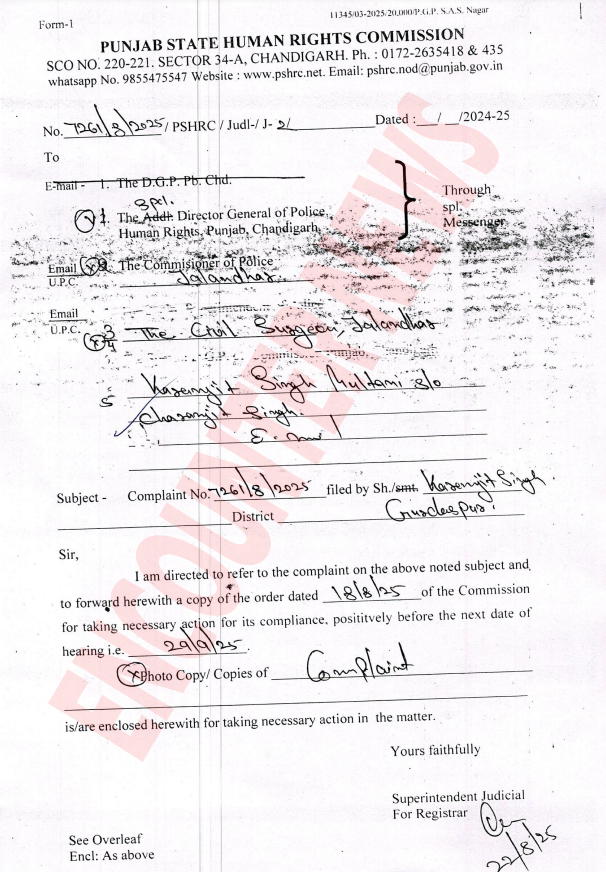 11345/03-2025/20,000/P.G.P. S.A.S. Nagar
Form-1
PUNJAB STATE HUMAN RIGHTS COMMISSION
SCO NO. 220-221. SECTOR 34-A, CHANDIGARH. Ph. : 0172-2635418 & 435
whatsapp No. 9855475547 Website : www.pshrc.net. Email: pshrc.nod@punjab.gov.in
No. 7261/8/2025 / PSHRC / Judl-/ J- 2/ Dated : __/ __/2024-25
To
E-mail - 1. The D.G.P. Pb. Chd.
Spl.
The Addl. Director General of Police,
Human Rights, Punjab, Chandigarh.
Through
spl.
Messenger
Email The Commisioner of Police
U.P.C. Jalandhar.
Email
U.P.C. 3 The Civil Surgeon, Jalandhar
4
5 Karamjit Singh Multani s/o
Charanjit Singh.
Subject - Complaint No. 7261/8/2025 filed by Sh./smt. Karamjit Singh
District Gurdaspur.
Sir,
I am directed to refer to the complaint on the above noted subject and
to forward herewith a copy of the order dated 18/8/25 of the Commission
for taking necessary action for its compliance, posititvely before the next date of
hearing i.e. 29/9/25.
Photo Copy/ Copies of Complaint
is/are enclosed herewith for taking necessary action in the matter.
Yours faithfully
Superintendent Judicial
For Registrar
22/8/25
See Overleaf
Encl: As above
ENCOUNTER NEWS